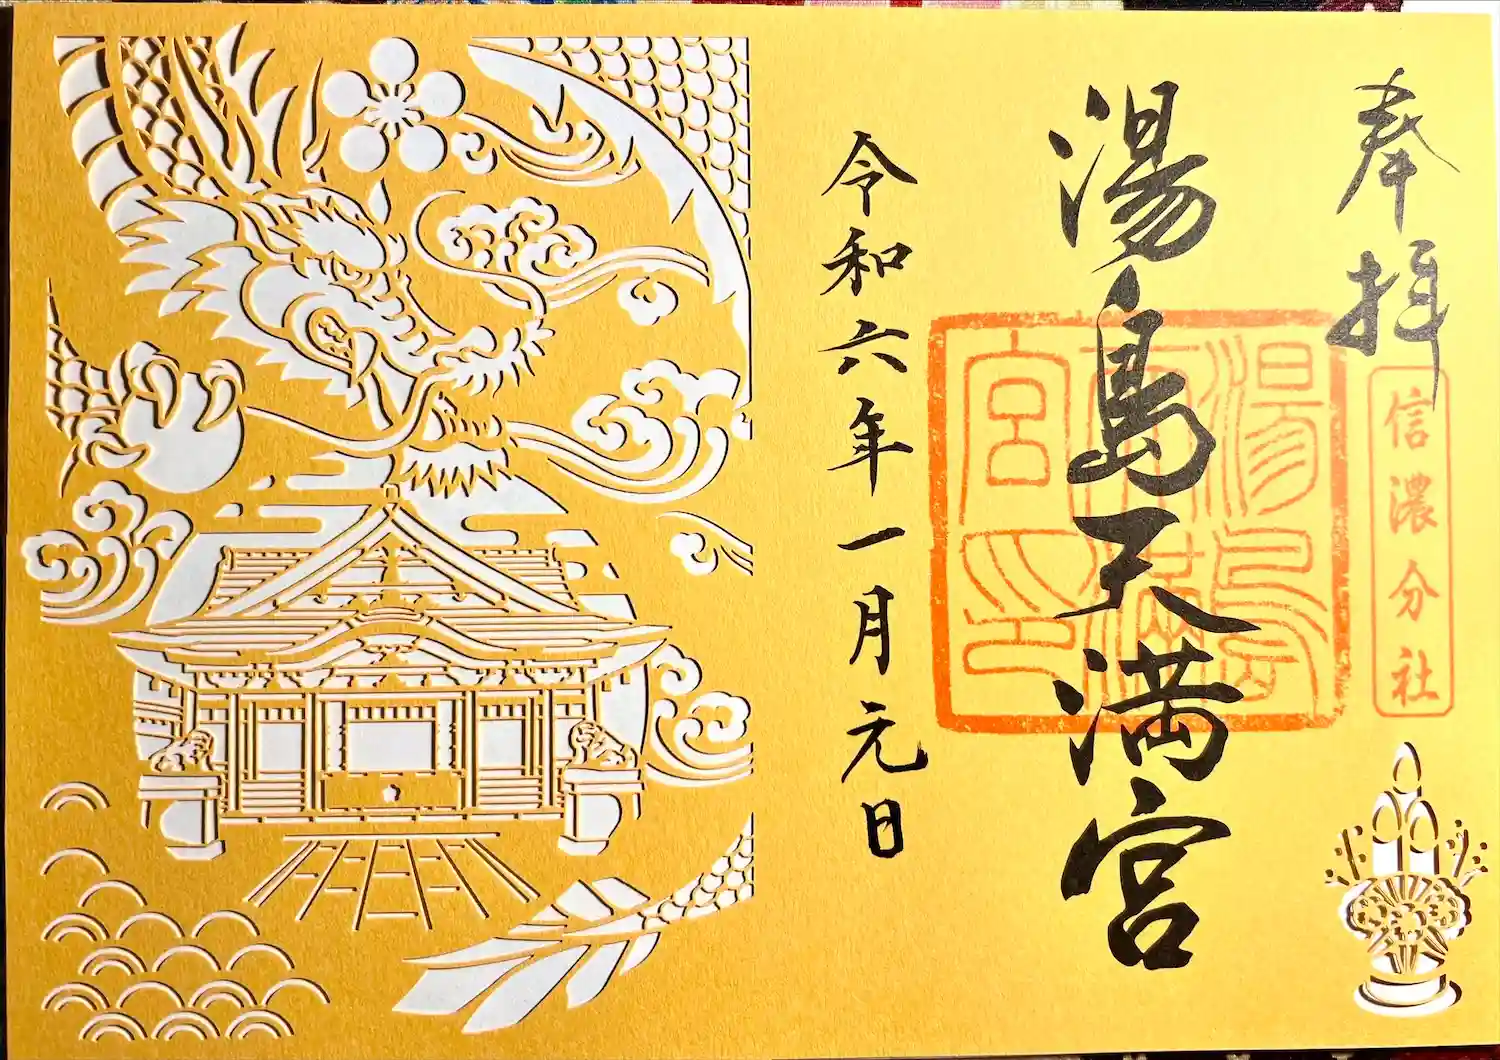 奉拝
信濃分社
湯島天満宮
湯島天満宮印
令和六年一月元日